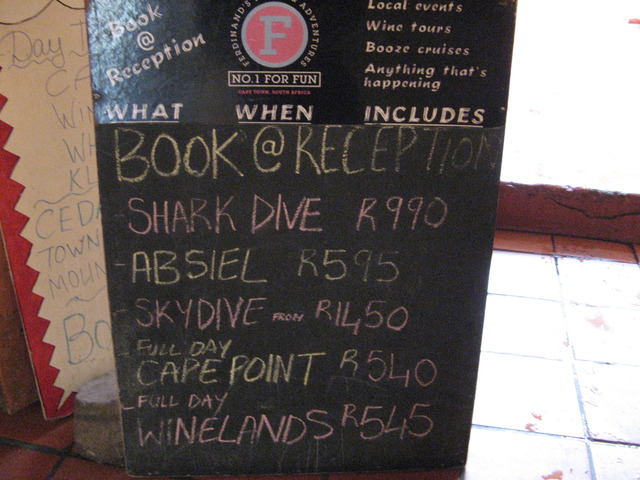 Book
@
Reception
FERDINAND'S
ADVENTURES
F
NO.1 FOR FUN
CAPE TOWN, SOUTH AFRICA
Local events
Wine tours
Booze cruises
Anything that's
happening
WHAT WHEN INCLUDES
BOOK @ RECEPTION
- SHARK DIVE R990
- ABSIEL R595
- SKYDIVE FROM R1450
- FULL DAY
CAPE POINT R540
- FULL DAY
WINELANDS R545
Day
TOWN